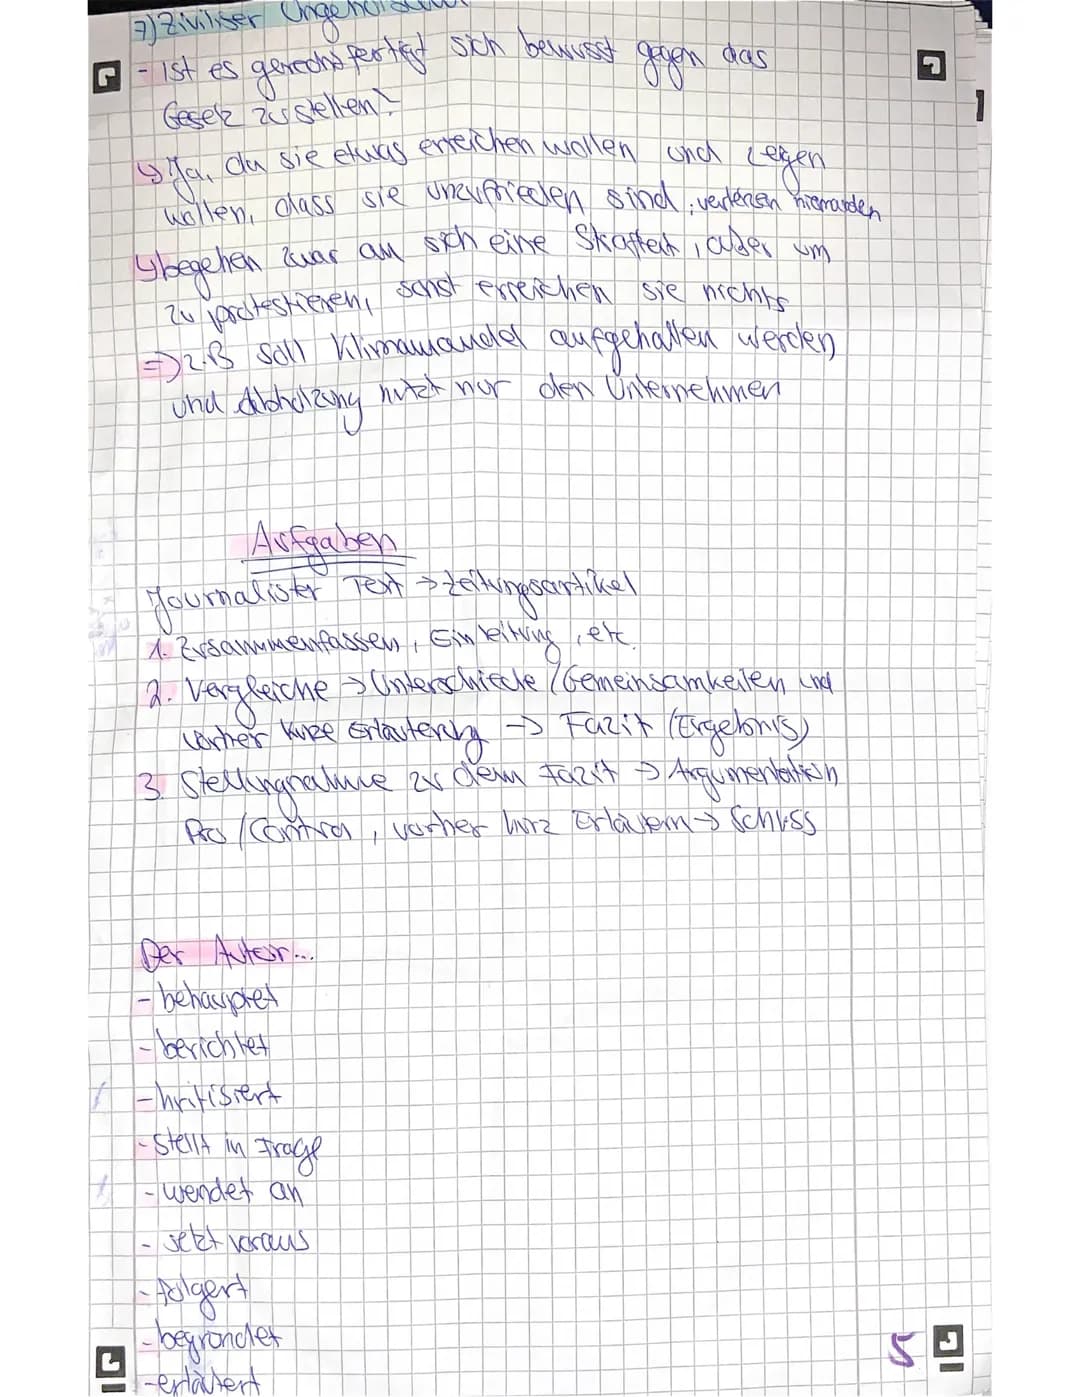 7) Ziviliser Ungehorsam
- Ist es gerechtfertigt sich bewusst gegen das
Gesetz zu stellen?
↳ Ja, da sie etwas erreichen wollen und zeigen
wollen, dass sie unzufrieden sind, verletzen niemanden
↳ begehen zwar an sich eine Straftat, aber um
zu protestieren, sonst erreichen sie nichts
=> z.B soll Klimawandel aufgehalten werden
und Abholzung nutzt nur den Unternehmen
Aufgaben
Journalister Text → Zeitungsartikel
1. Zusammenfassen, Einleitung, etc.
2. Vergleiche → Unterschiede / Gemeinsamkeiten und
vorher kurze Erläuterung → Fazit (Ergebnis)
3. Stellungnahme zu dem Fazit → Argumentation
Pro / Contra, vorher kurz Erläutern → Schluss
Der Autor...
- behauptet
- berichtet
- kritisiert
- stellt in Frage
- wendet an
- setzt voraus
- folgert
- begründet
- erläutert
5